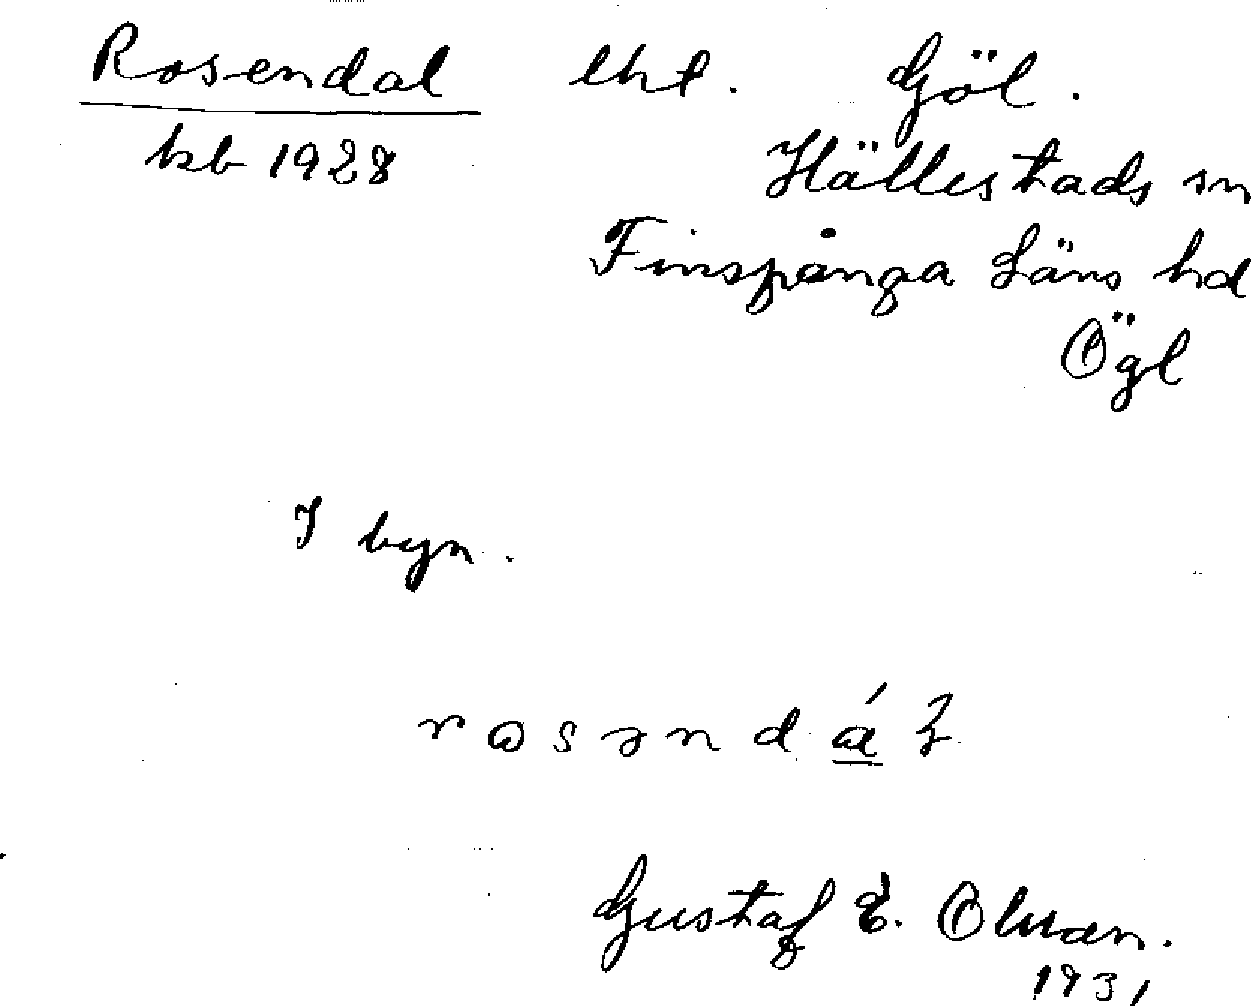 Rosendal lht. Göl.
kb 1928
Hällestads sn
Finspånga Läns hd
Ögl
I byn.
Gustaf E. Olman.
1931